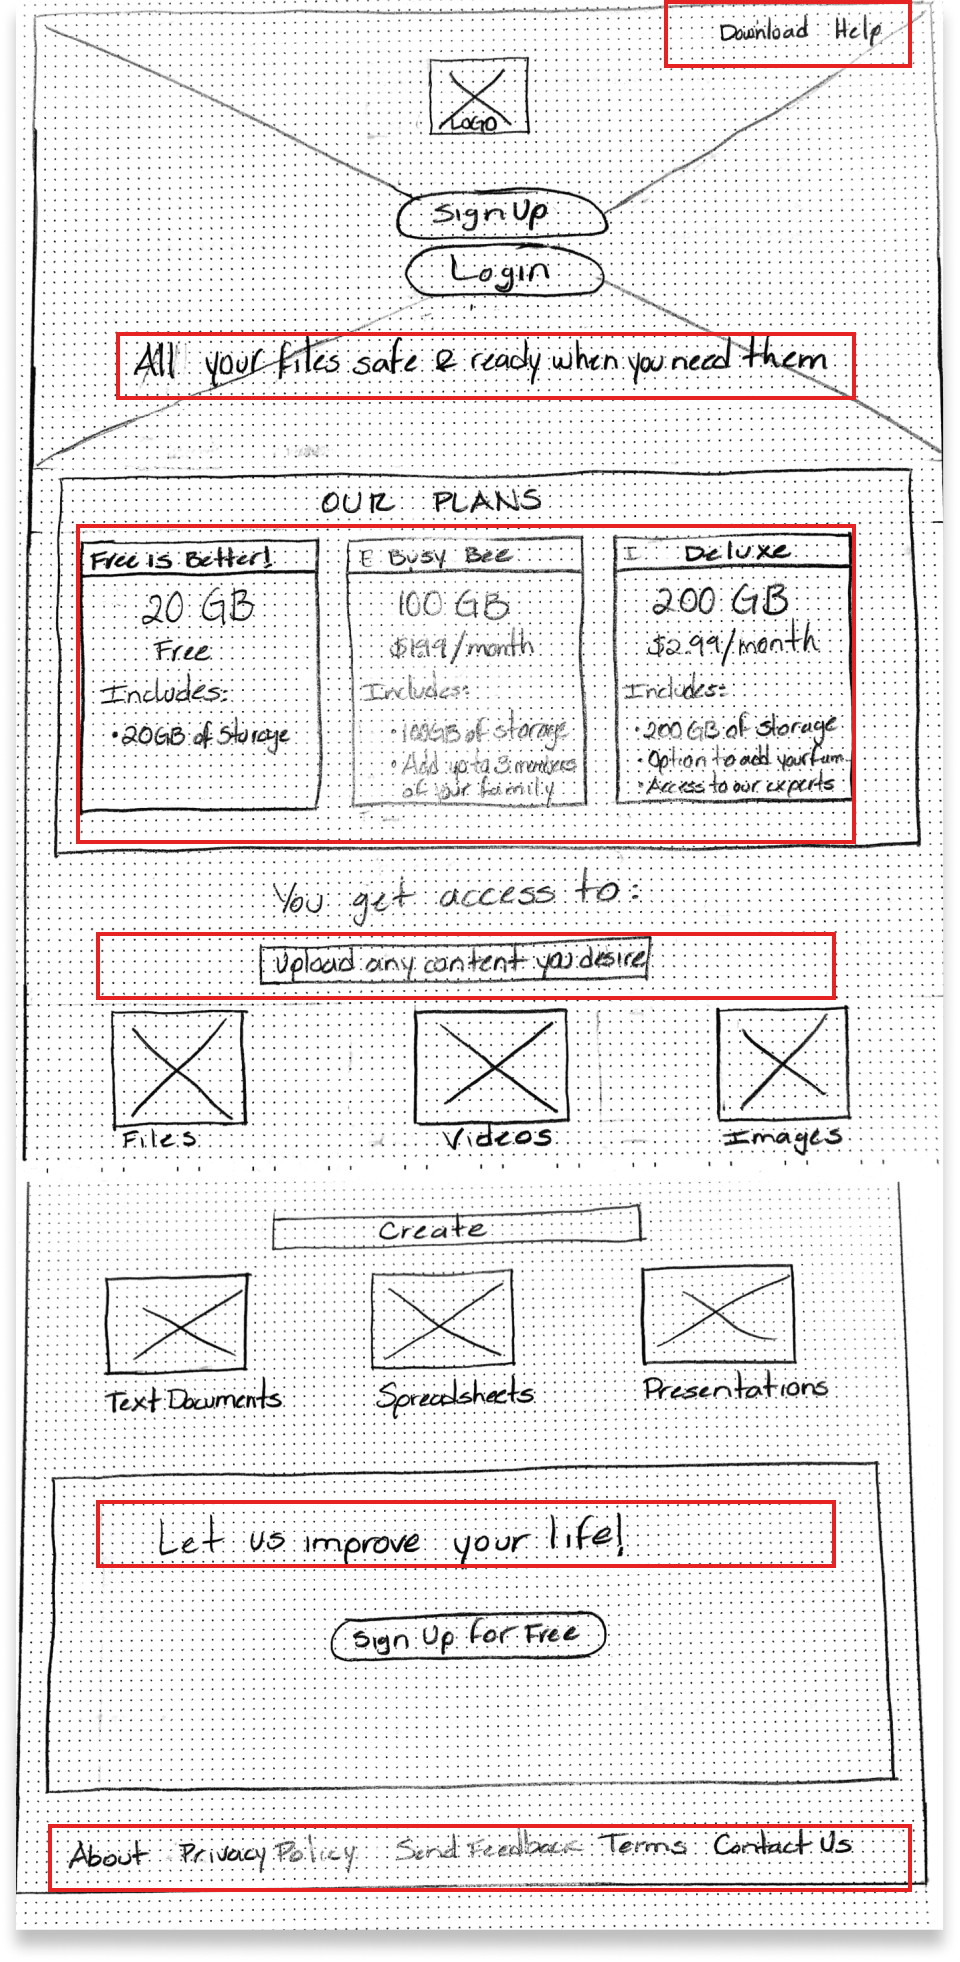 Download Help
LOGO
Sign Up
Login
All your files safe & ready when you need them
OUR PLANS
Free is Better!
20 GB
Free
Includes:
• 20GB of Storage
E Busy Bee
100 GB
/month
Includes:
• 100GB of storage
• Add up to 3 members
of your family
I Deluxe
200 GB
$2.99/month
Includes:
• 200 GB of storage
• Option to add your fam.
• Access to our experts
You get access to:
Upload any content you desire
Files
Videos
Images
Create
Text Documents
Spreadsheets
Presentations
Let us improve your life!
Sign Up for Free
About Privacy Policy Send Feedback Terms Contact Us